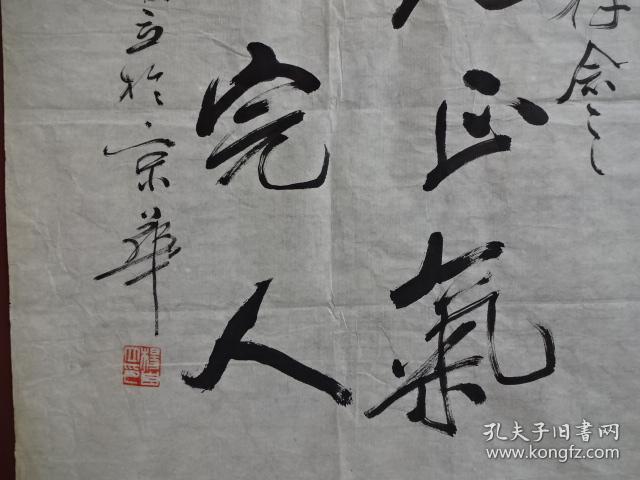 存念
正氣
完人
立於京華
孔夫子旧书网
www.kongfz.com